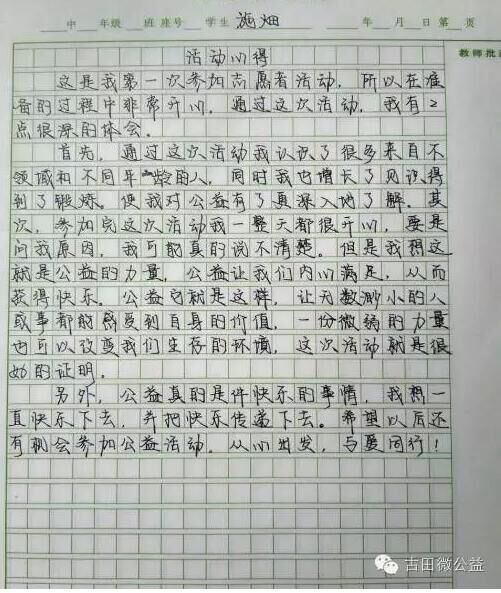 中 年级 班 座号 学生 施畑 年 月 日 第 页
教师批
活动心得
这是我第一次参加志愿者活动，所以在准
备的过程中非常开心，通过这次活动，我有2
点很深的体会。
首先，通过这次活动我认识了很多来自不
领域和不同年龄的人，同时我也增长了见识得
到了锻炼。使我对公益有了更深入地了解。其
次，参加完这次活动我一整天都很开心，要是
问我原因，我可能真的说不清楚。但是我想这
就是公益的力量，公益让我们内心满足，从而
获得快乐。公益它就是这样，让无数渺小的人
或事都能感受到自身的价值，一份微弱的力量
也可以改变我们生存的环境，这次活动就是很
好的证明。
另外，公益真的是件快乐的事情，我想一
直快乐下去，并把快乐传递下去。希望以后还
有机会参加公益活动。从心出发，与爱同行！
古田微公益